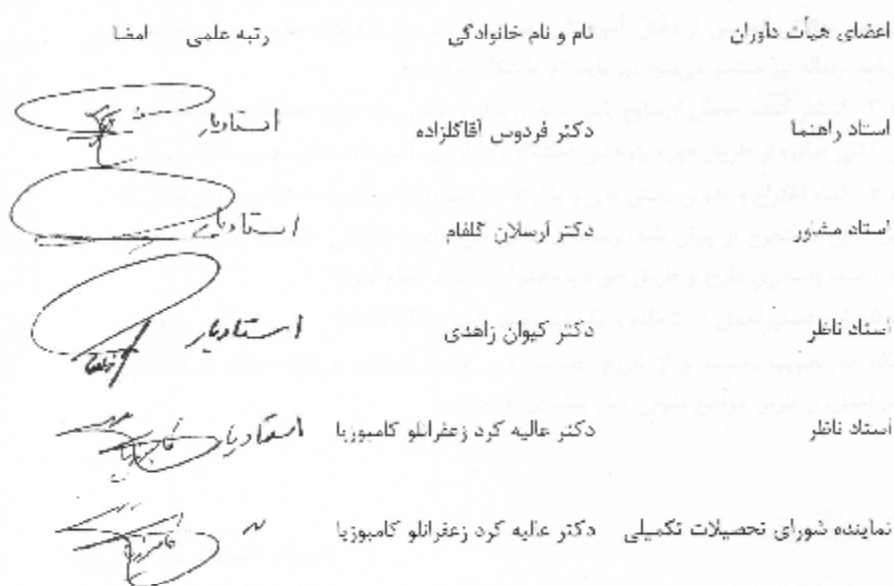 اعضای هیأت داوران نام و نام خانوادگی رتبه علمی امضا
استاد راهنما دکتر فردوس آقاگلزاده استادیار
استاد مشاور دکتر ارسلان گلفام استادیار
استاد ناظر دکتر کیوان زاهدی استادیار
استاد ناظر دکتر عالیه کرد زعفرانلو کامبوزیا استادیار
نماینده شورای تحصیلات تکمیلی دکتر عالیه کرد زعفرانلو کامبوزیا